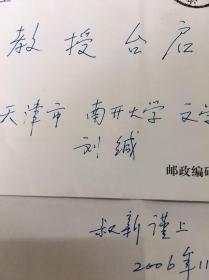 教授台启
天津市 南开大学 文学
刘缄
邮政编码
叔新谨上
2006年11